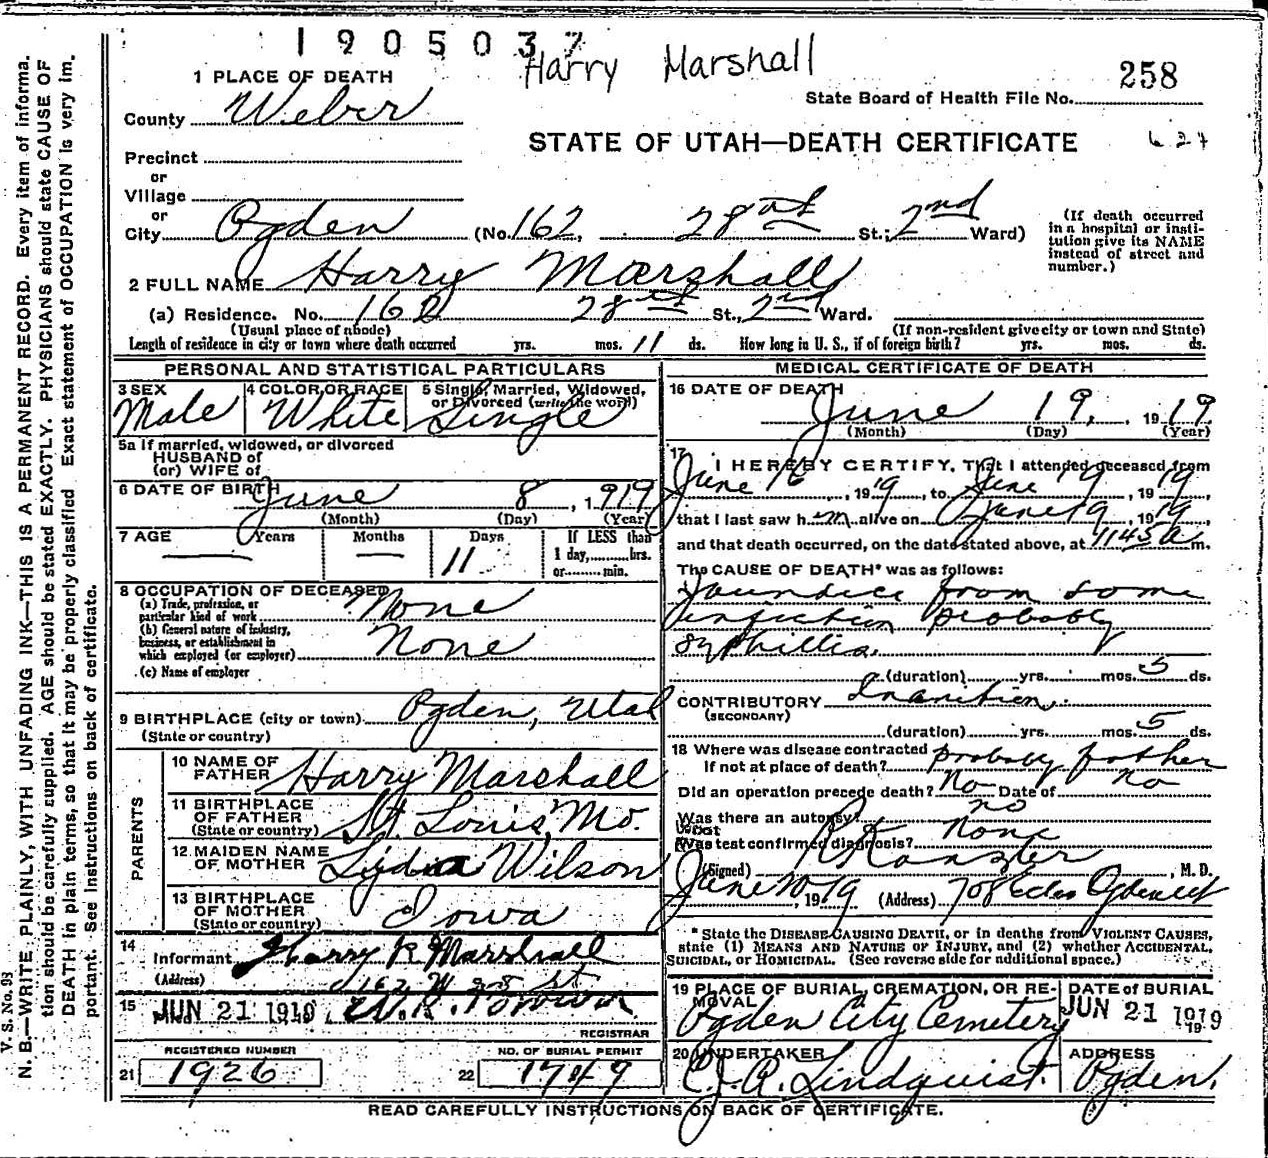 1905037
Harry Marshall
258
1 PLACE OF DEATH
State Board of Health File No.
County Weber
STATE OF UTAH—DEATH CERTIFICATE
627
Precinct
or
Village
or
City Ogden (No. 162, 28th St.; 2nd Ward)
(If death occurred in a hospital or insti-
tution give its NAME
instead of street and
number.)
2 FULL NAME Harry Marshall
(a) Residence. No. 162 28th St., 2nd Ward.
(Usual place of abode)
(If non-resident give city or town and State)
Length of residence in city or town where death occurred yrs. mos. 11 ds. How long in U. S., if of foreign birth? yrs. mos. ds.
PERSONAL AND STATISTICAL PARTICULARS
3 SEX 4 COLOR OR RACE 5 Single, Married, Widowed,
or Divorced (write the word)
Male White Single
5a If married, widowed, or divorced
HUSBAND of
(or) WIFE of
6 DATE OF BIRTH June 8, 1919
(Month) (Day) (Year)
7 AGE Years Months Days If LESS than
11 1 day, hrs.
or min.
8 OCCUPATION OF DECEASED
(a) Trade, profession, or
particular kind of work None
(b) General nature of industry,
business, or establishment in
which employed (or employer) None
(c) Name of employer
9 BIRTHPLACE (city or town) Ogden, Utah
(State or country)
PARENTS
10 NAME OF
FATHER Harry Marshall
11 BIRTHPLACE
OF FATHER
(State or country) St. Louis, Mo.
12 MAIDEN NAME
OF MOTHER Lydia Wilson
13 BIRTHPLACE
OF MOTHER
(State or country) Iowa
14
Informant Harry R Marshall
(Address) 162 28 St
15
Filed JUN 21 1919
REGISTRAR
REGISTERED NUMBER NO. OF BURIAL PERMIT
21 1926 22 1749
MEDICAL CERTIFICATE OF DEATH
16 DATE OF DEATH
June 19, 1919
(Month) (Day) (Year)
17
I HEREBY CERTIFY, That I attended deceased from
June 16, 1919, to June 19, 1919,
that I last saw him alive on June 19, 1919,
and that death occurred, on the date stated above, at 1145 a m.
The CAUSE OF DEATH* was as follows:
Jaundice from some
infection probably
syphillis.
(duration) yrs. mos. 5 ds.
CONTRIBUTORY Inanition.
(SECONDARY)
(duration) yrs. mos. 5 ds.
18 Where was disease contracted
If not at place of death? probably father
Did an operation precede death? No Date of no
Was there an autopsy? no
What test confirmed diagnosis? None
(Signed) , M. D.
June 20, 1919 (Address) 708 Eccles Ogden Ut
* State the DISEASE CAUSING DEATH, or in deaths from VIOLENT CAUSES,
state (1) MEANS AND NATURE OF INJURY, and (2) whether ACCIDENTAL,
SUICIDAL, or HOMICIDAL. (See reverse side for additional space.)
19 PLACE OF BURIAL, CREMATION, OR RE-
MOVAL
Ogden City Cemetery
DATE of BURIAL
JUN 21 1919
19
20 UNDERTAKER
C. J. A. Lindquist.
ADDRESS
Ogden.
READ CAREFULLY INSTRUCTIONS ON BACK OF CERTIFICATE.
V. S. No. 93
N. B.—WRITE PLAINLY, WITH UNFADING INK—THIS IS A PERMANENT RECORD. Every item of informa-
tion should be carefully supplied. AGE should be stated EXACTLY. PHYSICIANS should state CAUSE OF
DEATH in plain terms, so that it may be properly classified. Exact statement of OCCUPATION is very im-
portant. See instructions on back of certificate.